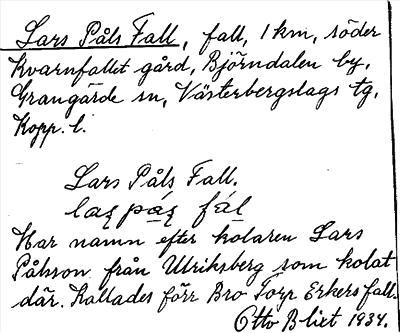 Lars Påls Fall, fall, 1 km, söder
Kvarnfallet gård, Björndalen by,
Grangärde sn, Västerbergslags tg,
Kopp. l.
Lars Påls Fall.
las pás fál
Har namn efter kolaren Lars
Pålsson från Ulriksberg som kolat
där. Kallades förr Bro Torp Erkersfall.
Otto Blixt 1934.